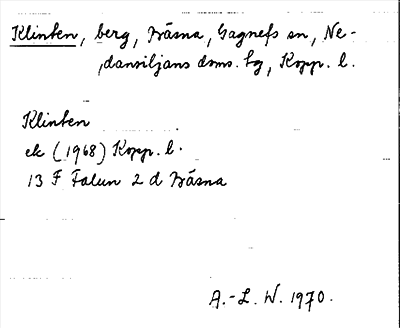 Klinten, berg, Bäsna, Gagnefs sn, Ne-
dansiljans doms. tg, Kopp. l.
Klinten
ek (1968) Kopp. l.
13 F Falun 2 d Bäsna
A.-L. W. 1970.